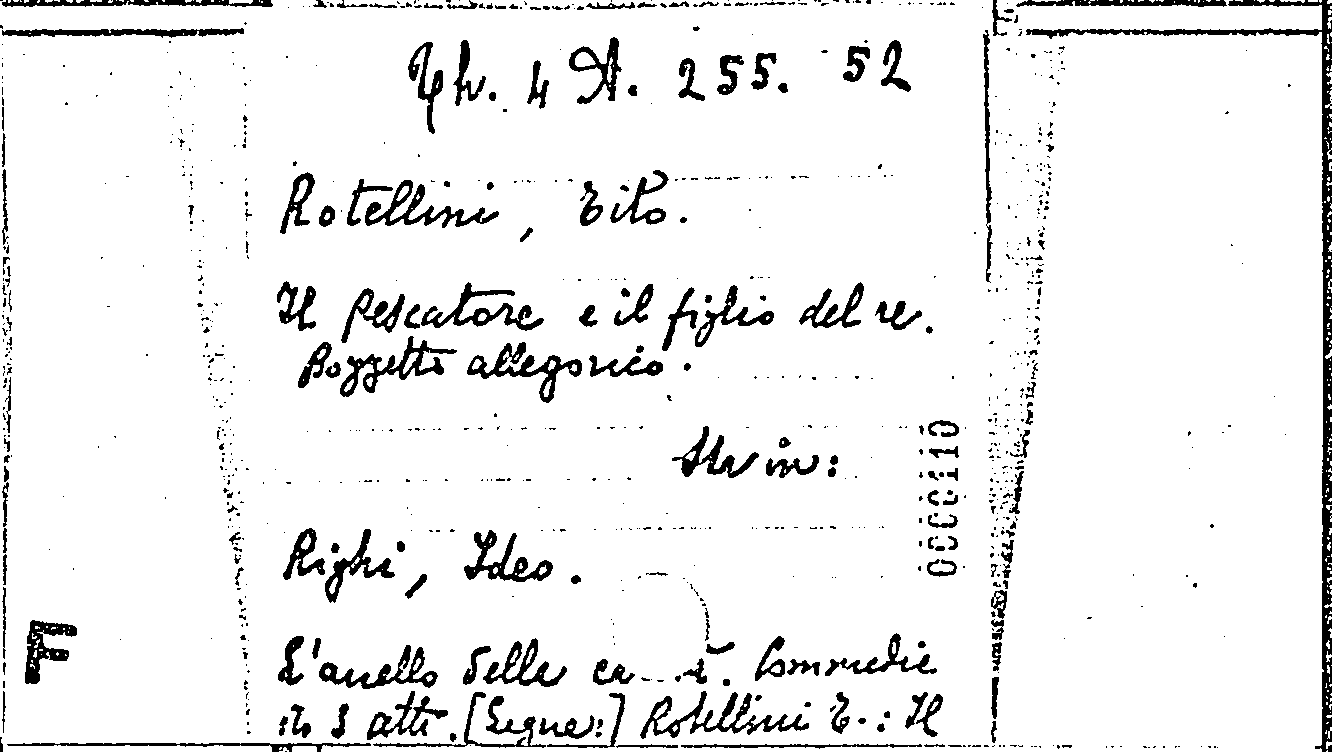 Th. 4 A. 255. 52
Rotellini, Tito.
Il pescatore e il figlio del re.
Bozzetto allegorico.
Sta in:
0000110
Righi, Ideo.
L'anello della. Commedia
in 3 atti. [Segue:] Rotellini T.: Il
F